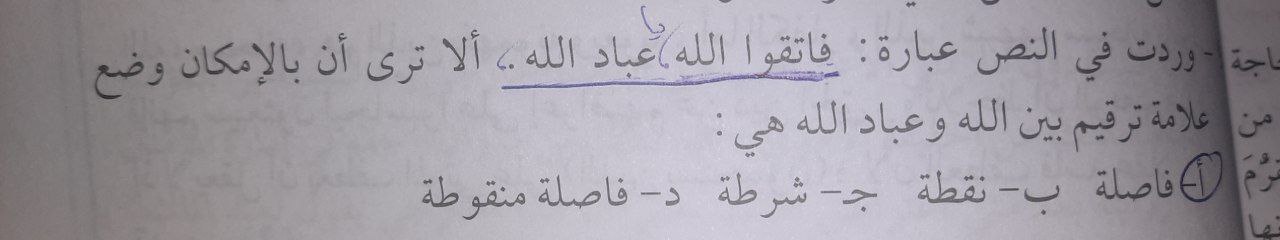 حاجة - وردت في النص عبارة : فاتقوا الله عباد الله .. ألا ترى أن بالإمكان وضع
من علامة ترقيم بين الله وعباد الله هي :
أ- فاصلة ب- نقطة جـ- شرطة د- فاصلة منقوطة